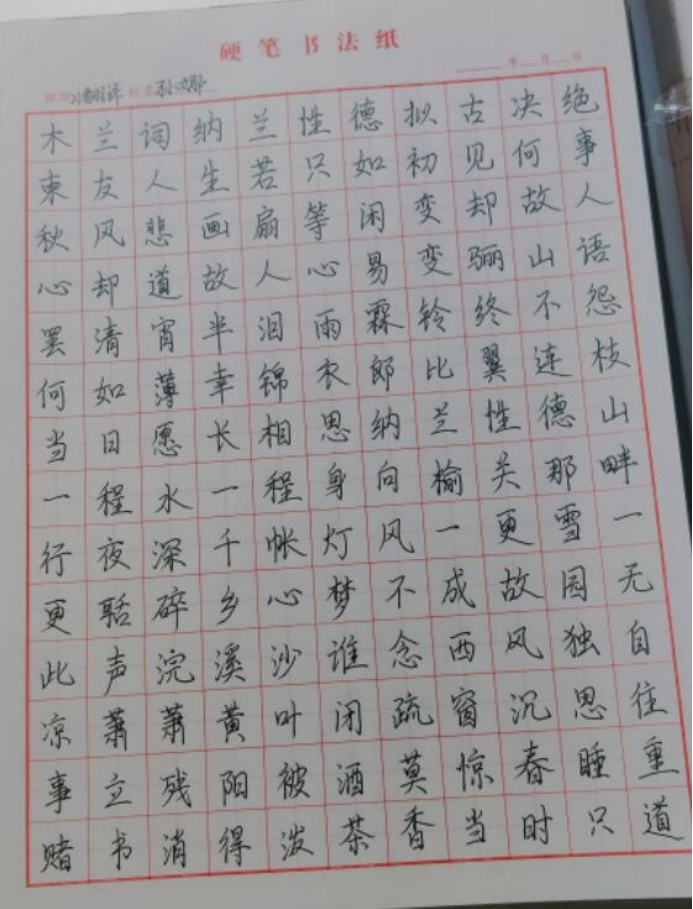 硬笔书法纸
年 月 日
木兰词纳兰性德拟古决绝
柬友人生若只如初见何事
秋风悲画扇等闲变却故人
心却道故人心易变骊山语
罢清宵半泪雨霖铃终不怨
何如薄幸锦衣郎比翼连枝
当日愿长相思纳兰性德山
一程水一程身向榆关那畔
行夜深千帐灯风一更雪一
更聒碎乡心梦不成故园无
此声浣溪沙谁念西风独自
凉萧萧黄叶闭疏窗沉思往
事立残阳被酒莫惊春睡重
赌书消得泼茶香当时只道